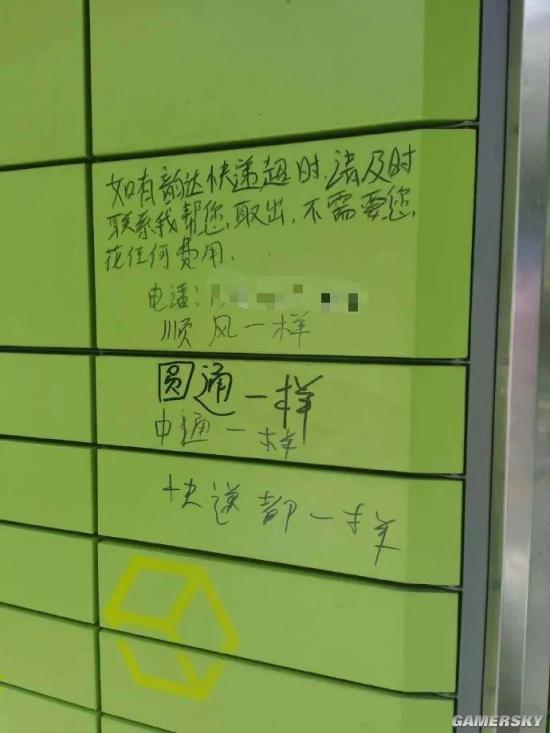 如有韵达快递超时,请及时
联系我帮您,取出,不需要您,
花任何费用.
电话:
顺风一样
圆通一样
中通一样
快递都一样
GAMERSKY